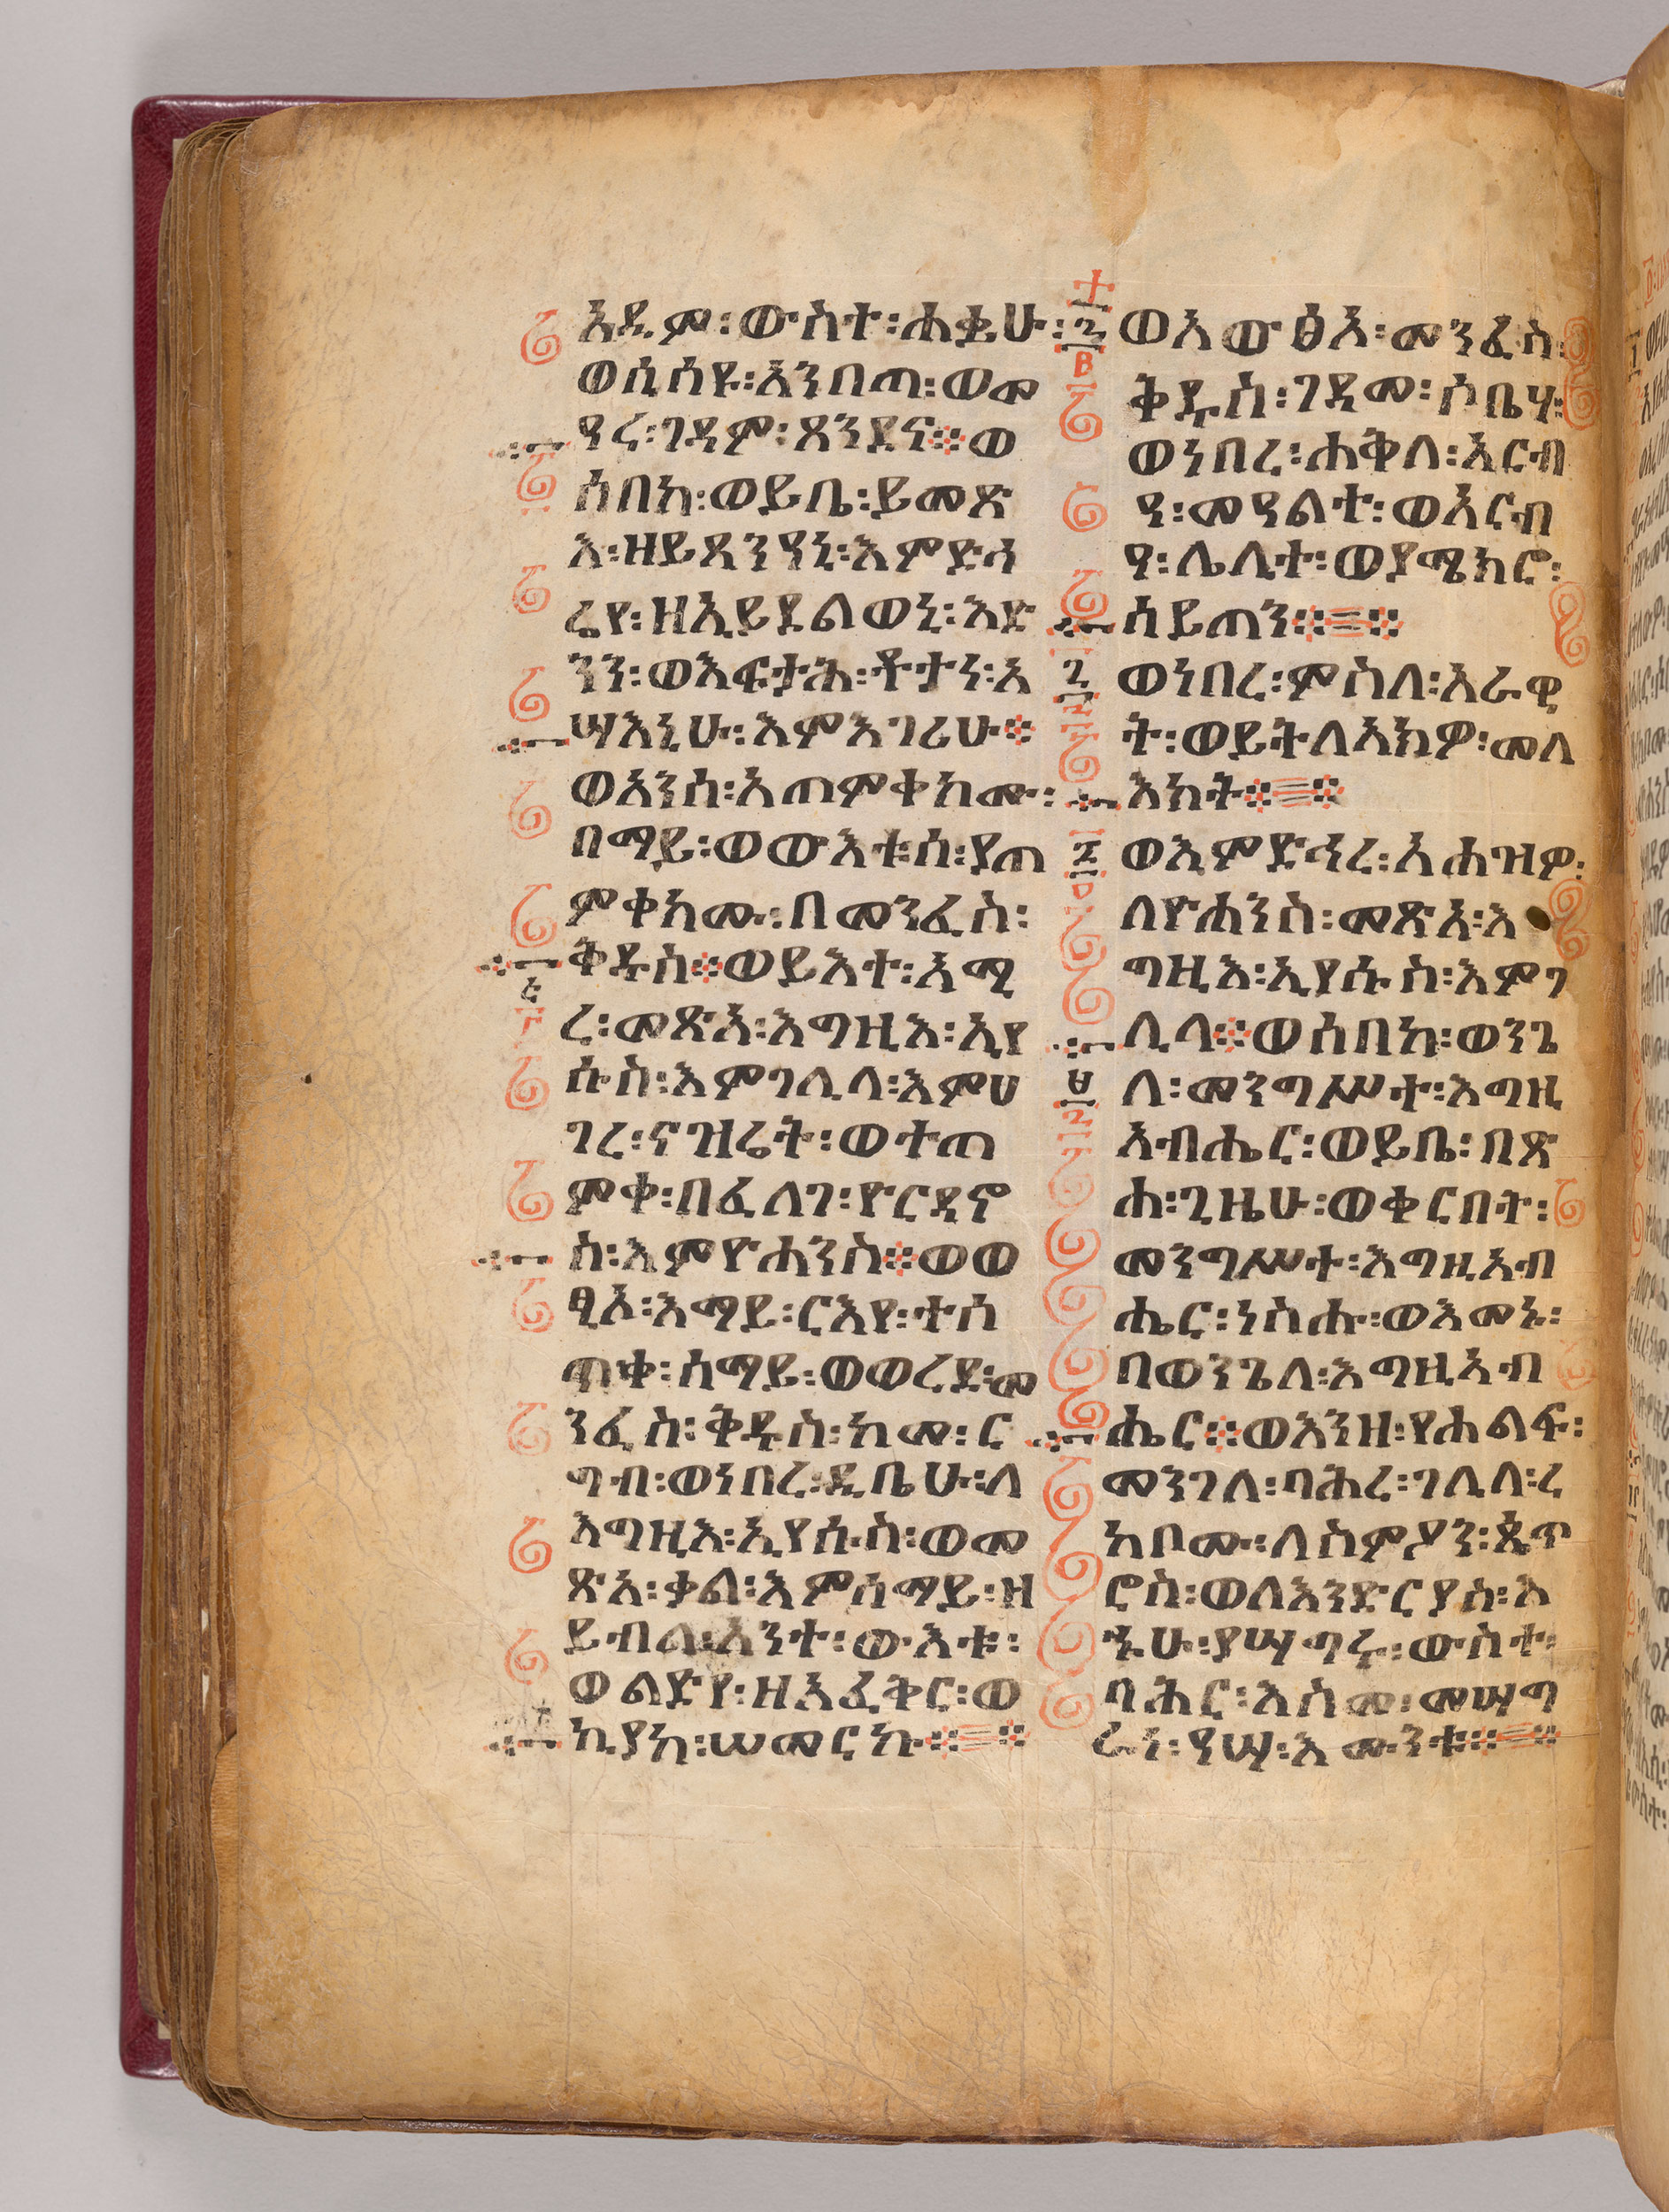 አዲም፡ውስተ፡ሐቌሁ፡
ወሲሰዩ፡አንበጣ፡ወመ
ዓረ፡ገዳም፡ጸንደና፨ወ
ሰበከ፡ወይቤ፡ይመጽ
እ፡ዘይጸንዓኒ፡እምድኅ
ሬየ፡ዘኢይደልወኒ፡አድ
ንን፡ወእፍታሕ፡ቶታነ፡አ
ሣእኒሁ፡እምእገሪሁ፨
ወአንሰ፡አጠምቀክሙ፡
በማይ፡ወውእቱሰ፡ያጠ
ምቀክሙ፡በመንፈስ፡
ቅዱስ፨ወይእተ፡አሚ
ረ፡መጽአ፡እግዚእ፡ኢየ
ሱስ፡እምገሊላ፡እምሀ
ገረ፡ናዝሬት፡ወተጠ
ምቀ፡በፈለገ፡ዮርዳኖ
ስ፡እምዮሐንስ፨ወወ
ፂኦ፡እማይ፡ርእየ፡ተሰ
ጢቆ፡ሰማይ፡ወወረደ፡መ
ንፈስ፡ቅዱስ፡ከመ፡ር
ግብ፡ወነበረ፡ዲቤሁ፡ለ
እግዚእ፡ኢየሱስ፡ወመ
ጽአ፡ቃል፡እምሰማይ፡ዘ
ይብል፡አንተ፡ውእቱ፡
ወልድየ፡ዘአፈቅር፡ወ
ኪያከ፡ሠመርኩ፨=፨
ወአውፅአ፡መንፈስ፡
ቅዱስ፡ገዳመ፡ሶቤሃ፡
ወነበረ፡ሐቅለ፡አርብ
ዓ፡መዓልተ፡ወአርብ
ዓ፡ሌሊተ፡ወያሜክሮ፡
ሰይጠን፨=፨
ወነበረ፡ምስለ፡አራዊ
ት፡ወይትለአክዎ፡መላ
እክት፨=፨
ወእምድኅረ፡አሐዝዎ፡
ለዮሐንስ፡መጽአ፡እ
ግዚእ፡ኢየሱስ፡እምገ
ሊላ፨ወሰበከ፡ወንጌ
ለ፡መንግሥተ፡እግዚ
አብሔር፡ወይቤ፡በጽ
ሐ፡ጊዜሁ፡ወቀርበት፡
መንግሥተ፡እግዚአብ
ሔር፡ነስሑ፡ወእመኑ፡
በወንጌለ፡እግዚአብ
ሔር፨ወእንዘ፡የሐልፍ፡
መንገለ፡ባሕረ፡ገሊላ፡ረ
ከቦሙ፡ለስምዖን፡ጴጥ
ሮስ፡ወለእንድርያስ፡እ
ኁሁ፡ያሣግሩ፡ውስተ፡
ባሕር፡እስመ፡መሣግ
ራነ፡ዓሣ፡እሙንቱ፨=፨